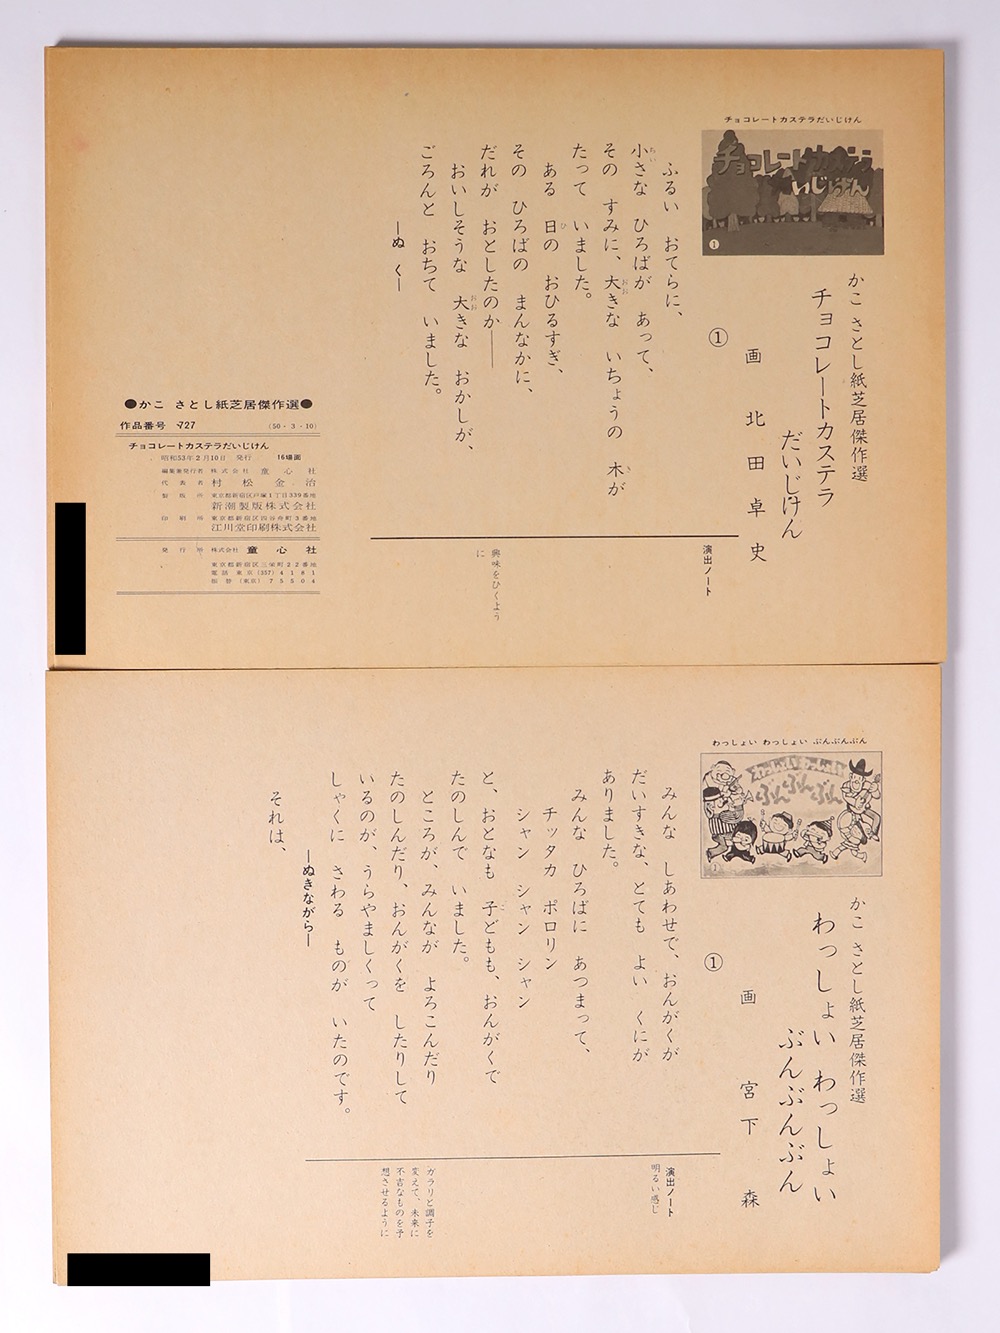 チョコレートカステラだいじけん
チョコレートカステラ
だいじけん
①
かこ さとし紙芝居傑作選
チョコレートカステラ
だいじけん
画 北田卓史
①
ふるい おてらに、
小さな ひろばが あって、
その すみに、大きな いちょうの 木が
たって いました。
ある 日の おひるすぎ、
その ひろばの まんなかに、
だれが おとしたのか――
おいしそうな 大きな おかしが、
ごろんと おちて いました。
―ぬ く―
演出ノート
興味をひくよう
に
●かこ さとし紙芝居傑作選●
作品番号 727 (50・3・10)
チョコレートカステラだいじけん
昭和53年2月10日 発行 16場面
編集兼発行者 株式会社 童心社
代表者 村松金治
製版所 東京都新宿区戸塚1丁目339番地
新潮製版株式会社
印刷所 東京都新宿区四谷舟町3番地
江川堂印刷株式会社
発行所 株式会社 童心社
東京都新宿区三栄町22番地
電話 東京 (357) 4181
振替 (東京) 75504
わっしょい わっしょい ぶんぶんぶん
わっしょい わっしょい
ぶんぶんぶん
①
かこ さとし紙芝居傑作選
わっしょい わっしょい
ぶんぶんぶん
画 宮下 森
①
みんな しあわせで、おんがくが
だいすきな、とても よい くにが
ありました。
みんな ひろばに あつまって、
チッタカ ポロリン
シャン シャン シャン
と、おとなも 子どもも、おんがくで
たのしんで いました。
ところが、みんなが よろこんだり
たのしんだり、おんがくを したりして
いるのが、うらやましくって
しゃくに さわる ものが いたのです。
―ぬきながら―
それは、
演出ノート
明るい感じ
ガラリと調子を
変えて、未来に
不吉なものを予
想させるように